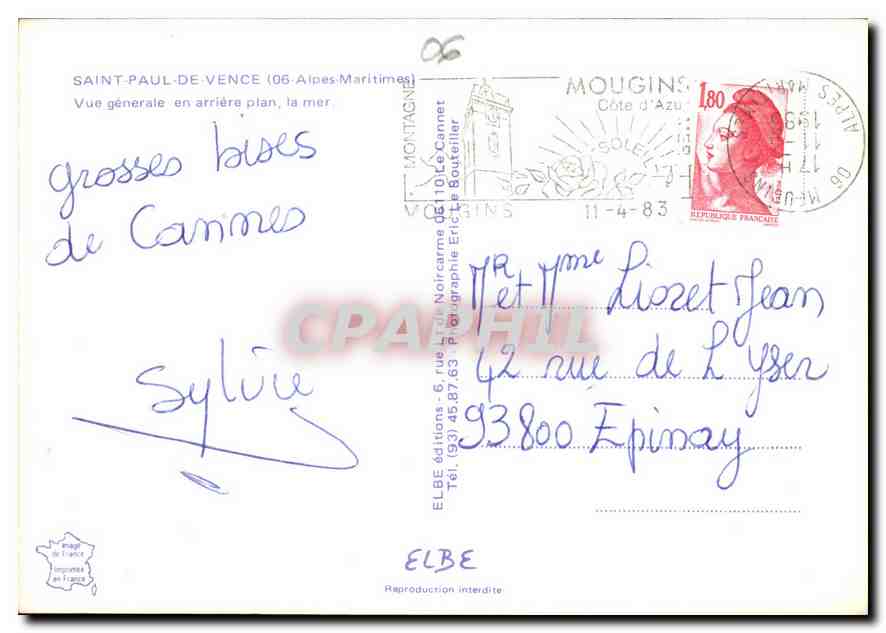 06
SAINT-PAUL-DE-VENCE (06-Alpes-Maritimes)
Vue générale en arrière plan, la mer.
grosses bises
de Cannes
Sylvie
MONTAGNE
MOUGINS
MOUGINS
Côte d'Azur
SOLEIL
11-4-83
1,80
REPUBLIQUE FRANÇAISE
ALPES MAR
06 MOUGINS
ELBE éditions - 6, rue Lt de Noircarme 06110 Le Cannet
Tél. (93) 45.87.63 - Photographie Eric Le Bouteiller
Mr et Mme Liozet Jean
42 rue de L Yser
93800 Epinay
CPAPHIL
image
de France
Imprimée
en France
ELBE
Reproduction interdite